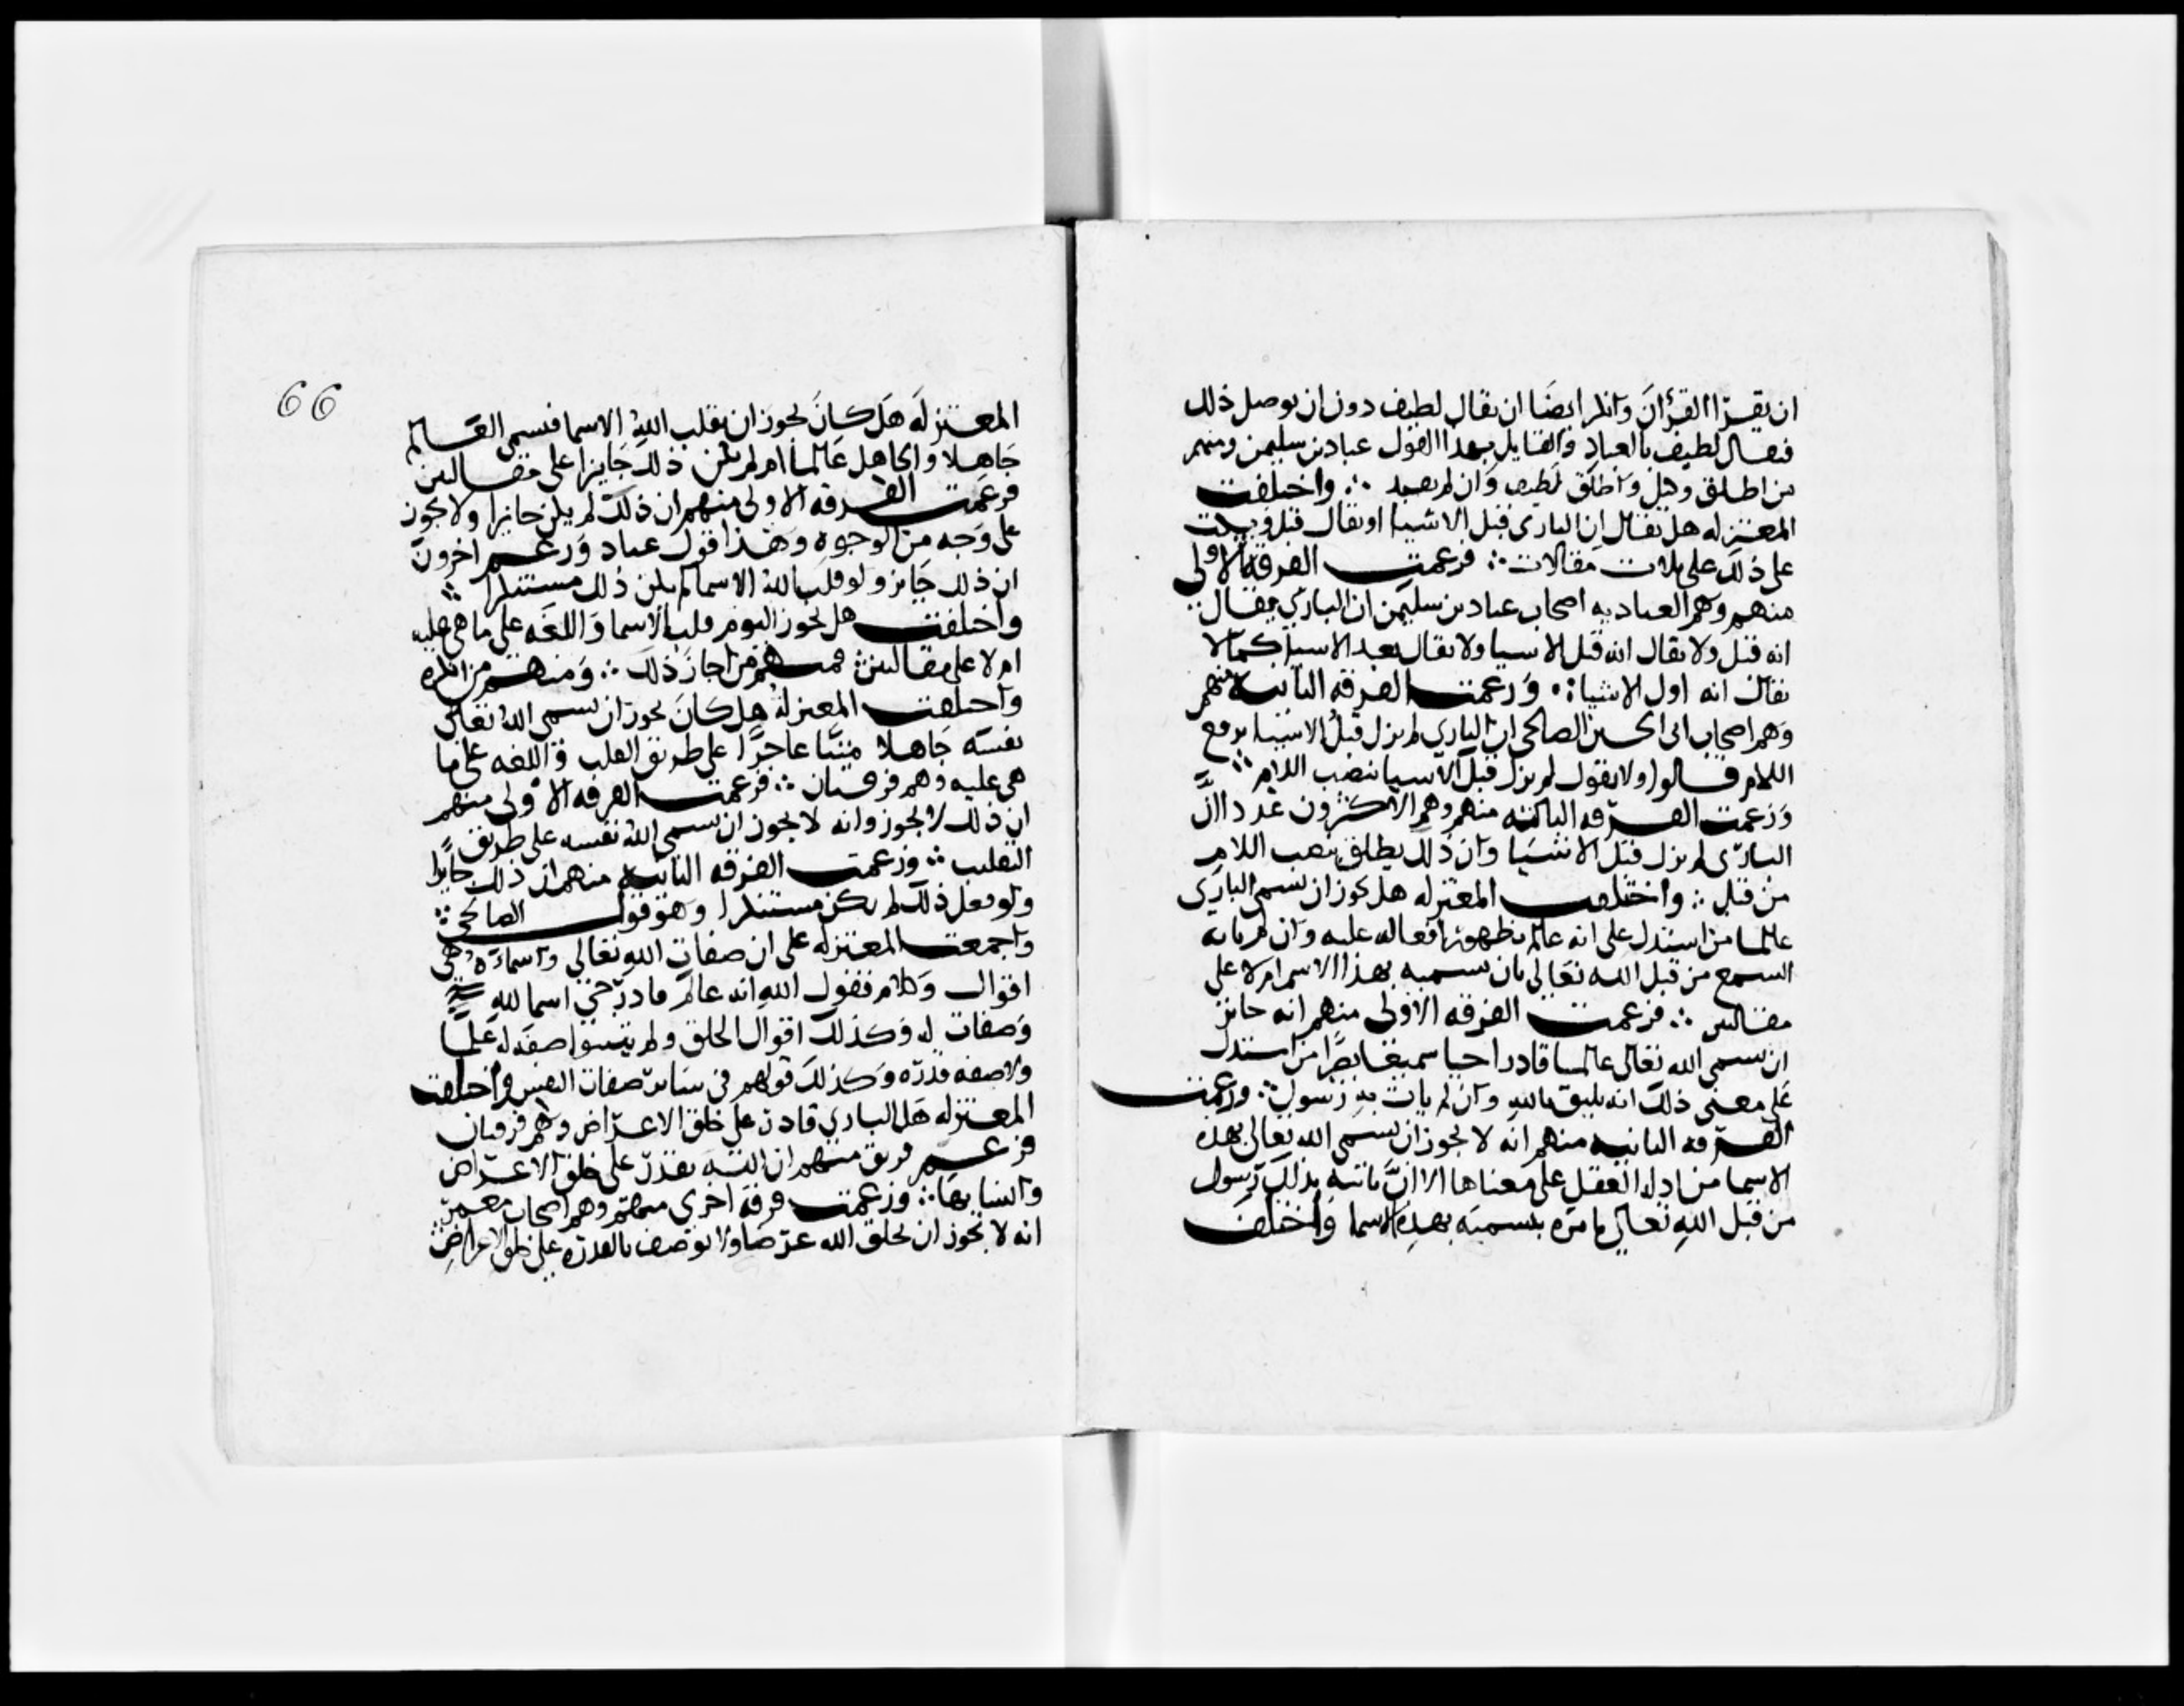 ان يقرا القرآن وانكر ايضا ان يقال لطيف دون ان يوصل ذلك
فيقال لطيف بالعباد والقايل بهذا القول عباد بن سليمن ومنهم
من اطلق وقيل واطلق لطيف وان لم يقيد ∴ واختلفت
المعتزله هل يقال ان الباري قبل الاشيا او يقال قبل ويسكت
على ذلك على ثلاث مقالات ∴ فزعمت الفرقه الاولى
منهم وهم العباديه اصحاب عباد بن سليمن ان الباري يقال
انه قبل ولا يقال انه قبل الاشيا ولا يقال بعد الاشيا كما لا
يقال انه اول الاشيا ∴ وزعمت الفرقه الثانيه منهم
وهم اصحاب ابي الحسين الصالحي ان الباري لم يزل قبل الاشيا برفع
اللام قالوا ولا يقول لم يزل قبل الاشيا بنصب اللام ∴
وزعمت الفرقه الثالثه منهم وهم الاكثرون عددا ان
الباري لم يزل قبل الاشيا وان ذلك يطلق بنصب اللام
من قبل ∴ واختلفت المعتزله هل يجوز ان يسمى الباري
عالما من استدل على انه عالم بظهور افعاله عليه وان لم ياته
السمع من قبل الله تعالى بان يسميه بهذا الاسم ام لا على
مقالتين ∴ فزعمت الفرقه الاولى منهم انه جايز
ان يسمى الله تعالى عالما قادرا حيا سميعا بصيرا من استدل
على معنى ذلك انه يليق بالله وان لم يات به رسول ∴ وزعمت
الفرقه الثانيه منهم انه لا يجوز ان يسمى الله تعالى بهذه
الاسما من ادله العقل على معناها الا ان ياتيه بذلك رسول
من قبل الله تعالى يامره بتسميته بهذه الاسما واختلفت
66
المعتزله هل كان يجوز ان يقلب الله الاسما فيسمى العالم
جاهلا والجاهل عالما ام لم يكن ذلك جايزا على مقالتين
فزعمت الفرقه الاولى منهم ان ذلك لم يكن جايزا ولا يجوز
على وجه من الوجوه وهذا قول عباد وزعم اخرون
ان ذلك جايز ولو قلب الله الاسما لم يكن ذلك مستنكرا ∴
واختلفت هل يجوز اليوم قلب الاسما واللغه على ما هي عليه
ام لا على مقالتين ∴ فمنهم من اجاز ذلك ∴ ومنهم من انكره
واختلفت المعتزله هل كان يجوز ان يسمى الله تعالى
نفسه جاهلا ميتا عاجزا على طريق القلب واللغه على ما
هي عليه وهم فرقتان ∴ فزعمت الفرقه الاولى منهم
ان ذلك لا يجوز وانه لا يجوز ان يسمى الله نفسه على طريق
التقليب ∴ وزعمت الفرقه الثانيه منهم ان ذلك جايزا
ولو فعل ذلك لم يكن مستنكرا وهو قول الصالحي ∴
واجمعت المعتزله على ان صفات الله تعالى واسماءه هي
اقوال وكلام فقول الله انه عالم قادر حي اسما لله
وصفات له وكذلك اقوال الخلق ولم يثبتوا صفه له علما
ولا صفه قدره وكذلك قولهم في ساير صفات النفس واختلفت
المعتزله هل الباري قادر على خلق الاعراض وهم فرقتان
فزعم فريق منهم ان الله يقدر على خلق الاعراض
وانشايها ∴ وزعمت فرقه اخرى منهم وهم اصحاب معمر
انه لا يجوز ان يخلق الله عرضا ولا يوصف بالقدره على خلق الاعراض